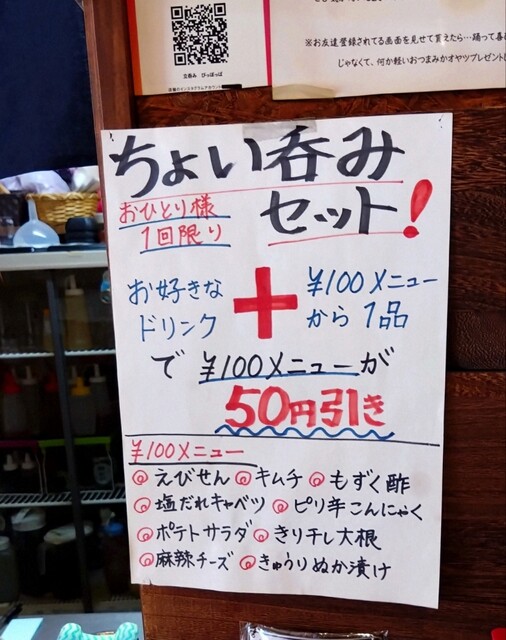 立呑み ぴっぽっぱ
※お友達登録されてる画面を見せて貰えたら…踊って喜
じゃなくて、何か軽いおつまみかオヤツプレゼントし
ちょい呑み
セット!
おひとり様
1回限り
お好きな
ドリンク
+
¥100メニュー
から1品
で ¥100メニューが
50円引き
¥100メニュー
◎えびせん ◎キムチ ◎もずく酢
◎塩だれキャベツ ◎ピリ辛こんにゃく
◎ポテトサラダ ◎きり干し大根
◎麻辣チーズ ◎きゅうりぬか漬け